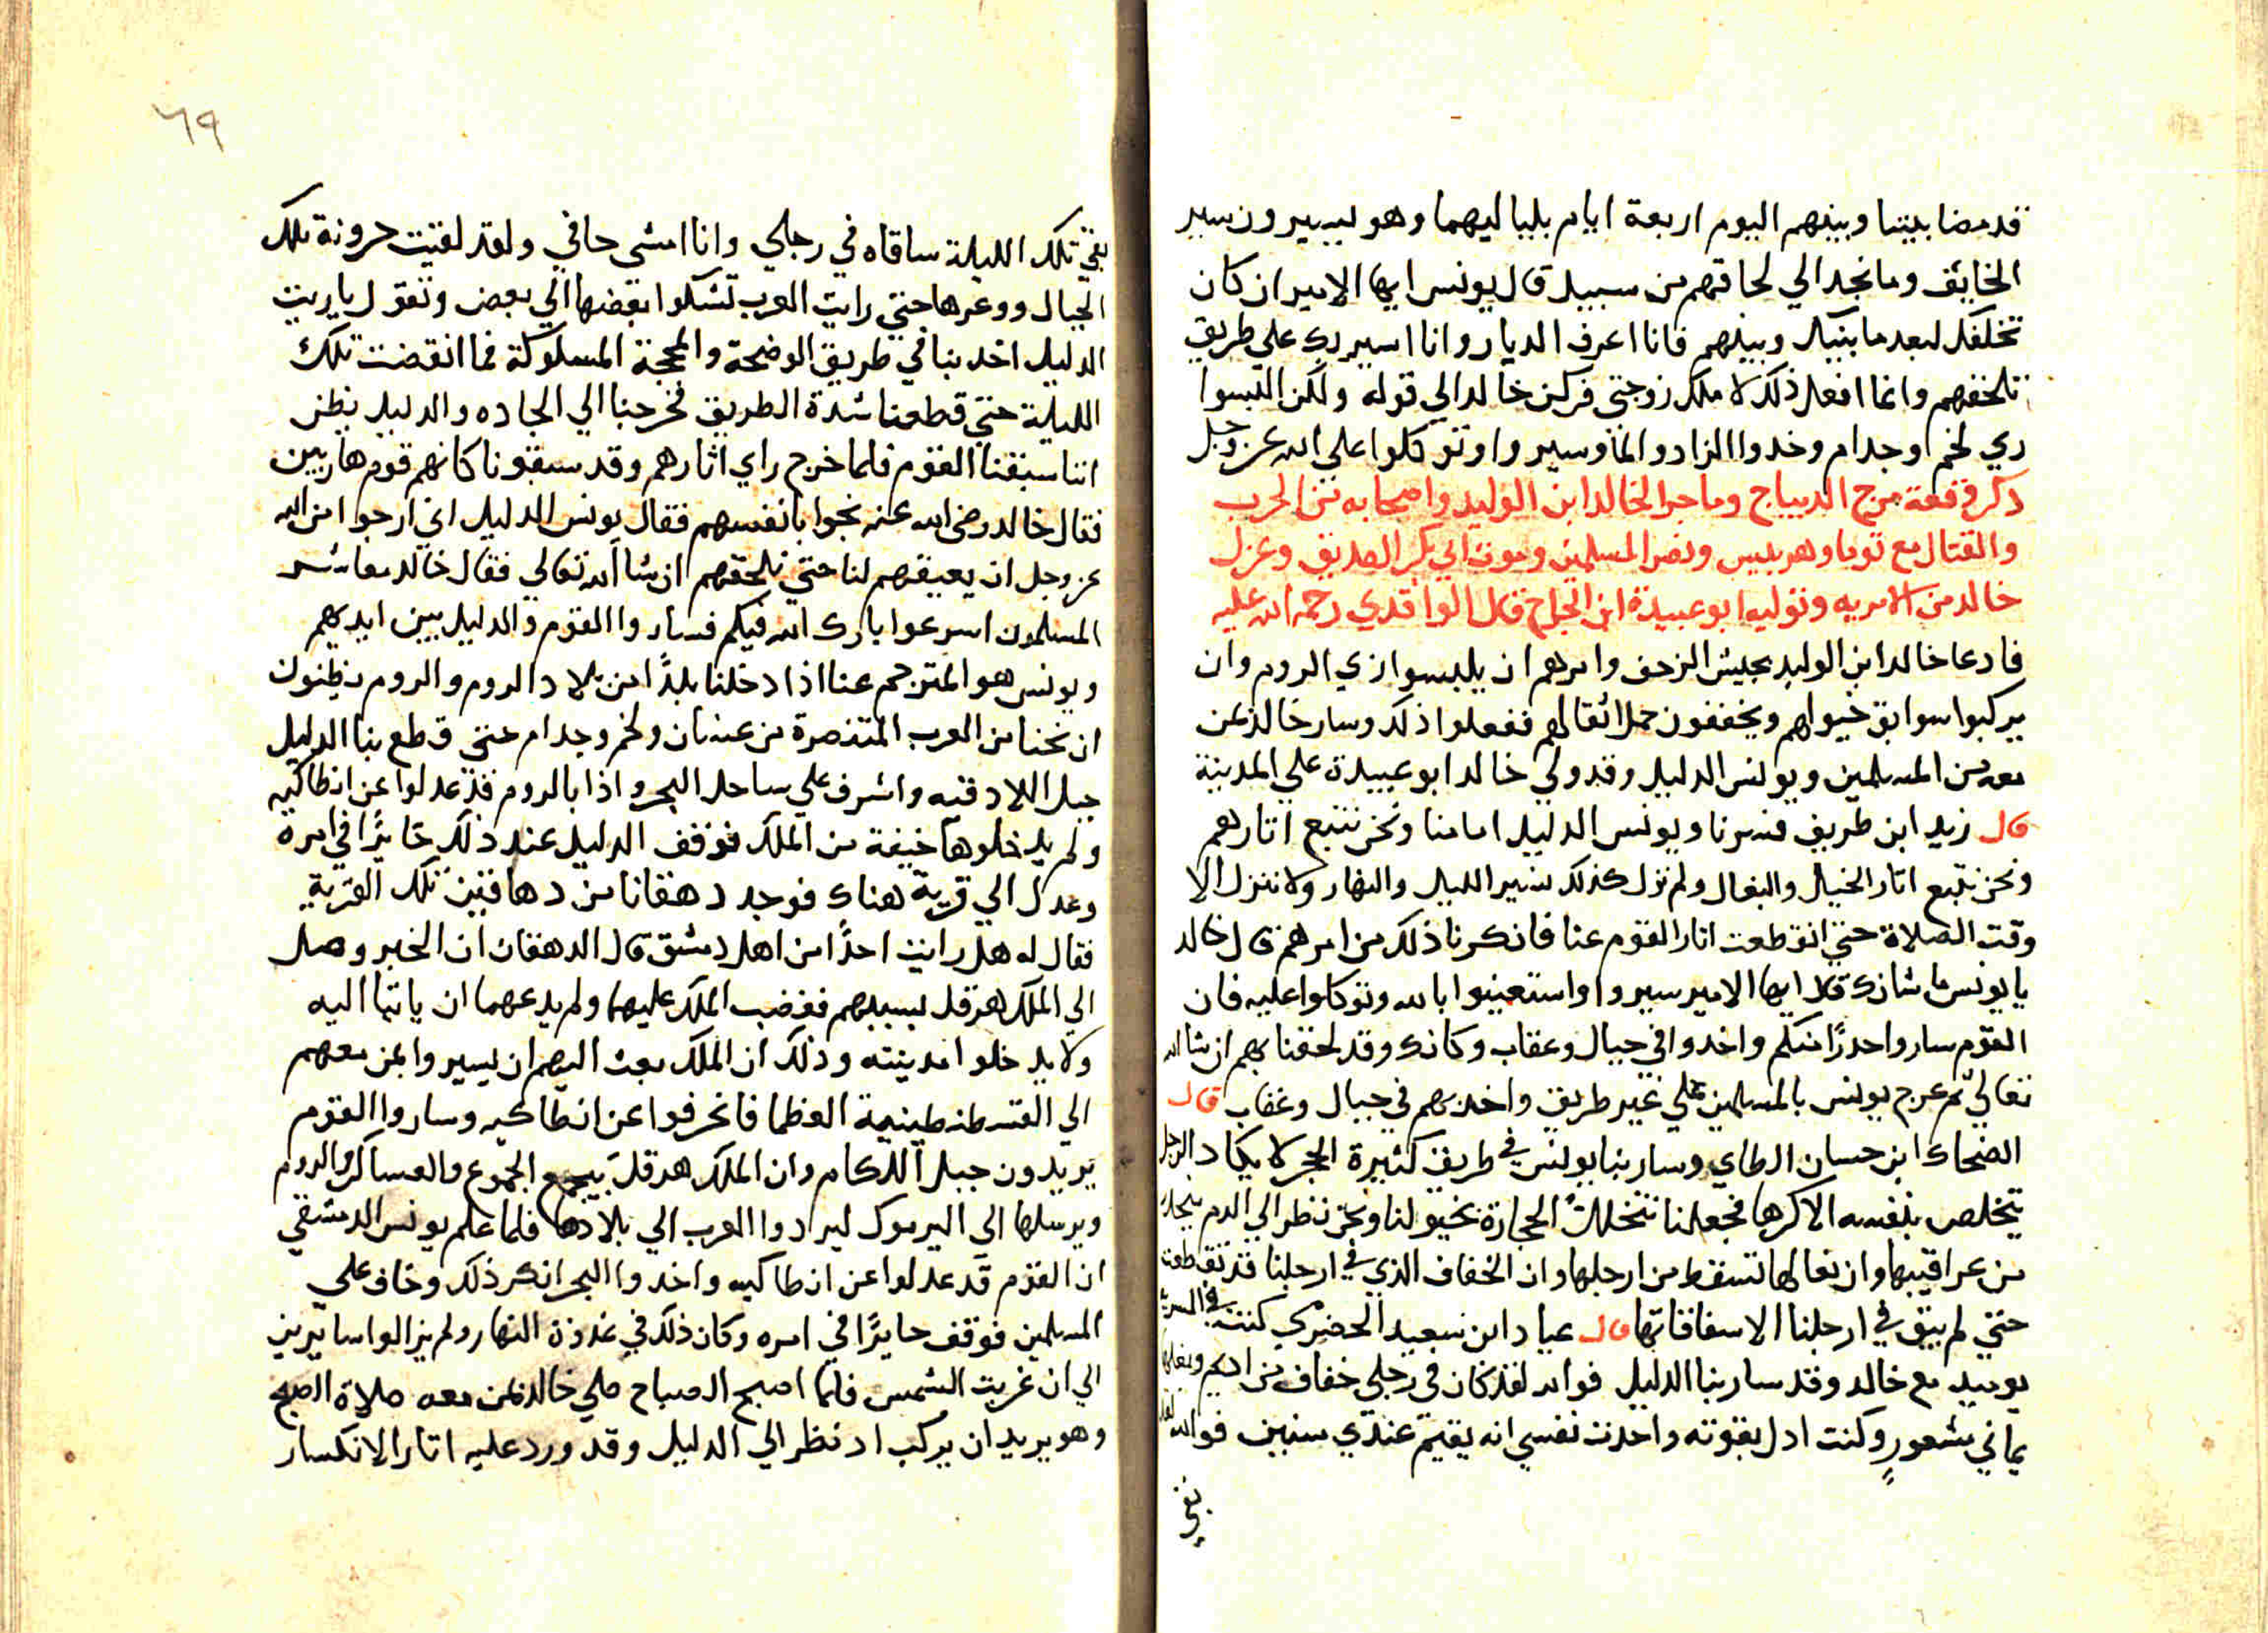 قد مضا بيننا وبينهم اليوم اربعة ايام بلياليهما وهو يسيرون سير
الخايف وما نجد الي لحاقهم من سبيل قال يونس ايها الامير ان كان
تخلفك لبعد ما بينك وبينهم فانا اعرف الديار وانا اسير بك علي طريق
تلحقهم وانما افعل ذلك لاملك زوجتي فركن خالد الي قوله ولكن البسوا
زي لخم وجدام وخدوا الزاد والما وسيروا وتوكلوا علي الله عز وجل
دكر وقعة مرج الديباج وما جرا لخالد ابن الوليد واصحابه من الحرب
والقتال مع توما وهربيس ونصر المسلمين وموت ابي بكر الصديق وعزل
خالد من الامريه وتوليه ابو عبيدة ابن الجراح قال الواقدي رحمه الله عليه
فادعا خالد ابن الوليد بجيش الزحف وامرهم ان يلبسوا زي الروم وان
يركبوا سوابق خيولهم ويخففون حمل اثقالهم ففعلوا ذلك وسار خالد بمن
معه من المسلمين ويونس الدليل وقد ولي خالد ابو عبيدة علي المدينة
قال زيد ابن طريف فسرنا ويونس الدليل امامنا ونحن نتبع اثارهم
ونحن نتبع اثار الخيل والبغال ولم نزل كذلك نسير الليل والنهار ولا ننزل الا
وقت الصلاة حتي انقطعت اثار القوم عنا فانكرنا ذلك من امرهم قال خالد
يا يونس ما شانك قال ايها الامير سيروا واستعينوا بالله وتوكلوا عليه فان
القوم سار واحدرًا منكم واخدوا في جبال وعقاب وكانك وقد لحقنا بهم ان شا الله
تعالي ثم عرج يونس بالمسلمين علي غير طريق واخد بهم في جبال وعقاب قال
الضحاك ابن حسان الطاي وسار بنا يونس في طريق كثيرة الحجر لا يكاد الرجل
يتخلص بنفسه الا كرها فجعلنا نتخلل الحجارة بخيولنا ونحن ننظر الي الدم ينحدر
من عراقيبها وان نعالها تسقط من ارجلها وان الخفاف الذي في ارجلنا قد تقطعت
حتي لم يبق في ارجلنا الا سقاقاتها قال عباد ابن سعيد الحضرمي كنت في السرية
يوميد مع خالد وقد سار بنا الدليل فوالله لقد كان في رجلي خفاف من اديم ونعلها
يماني بشعور وكنت ادل بقوته واحدث نفسي انه يقيم عندي سنين فوالله لقد
بقي
٦٩
بقي تلك الليلة ساقاه في رجلي وانا امشي حافي ولقد لقيت حرونة تلك
الجبال ووعرها حتي رايت العرب تشكوا بعضها الي بعض وتقول يا ريت
الدليل اخد بنا في طريق الوضحة والمحجة المسلوكة فما انقضت تلك
الليلة حتي قطعنا شدة الطريق فخرجنا الي الجاده والدليل يظن
اننا سبقنا القوم فلما خرج راي اثارهم وقد سبقونا كانهم قوم هاربين
فقال خالد رضي الله عنه نجوا بانفسهم فقال يونس الدليل اني ارجوا من الله
عز وجل ان يعيقهم لنا حتي نلحقهم ان شا الله تعالي فقال خالد معاشر
المسلمون اسرعوا بارك الله فيكم فساروا القوم والدليل بين ايديهم
ويونس هو المترجم عنا اذا دخلنا بلدًا من بلاد الروم والروم يظنون
ان نحنا من العرب المتنصرة من غسان ولخم وجدام حتي قطع بنا الدليل
جبل اللادقيه واشرف علي ساحل البحر واذا بالروم قد عدلوا عن انطاكيه
ولم يدخلوها خيفة من الملك فوقف الدليل عند ذلك حايرًا في امره
وعدل الي قرية هناك فوجد دهقانا من دهاقين تلك القرية
فقال له هل رايت احدًا من اهل دمشق قال الدهقان ان الخبر وصل
الي الملك هرقل بسببهم فغضب الملك عليهما ولم يدعهما ان ياتيا اليه
ولا يدخلوا مدينته وذلك ان الملك بعث اليهم ان يسيروا بمن معهم
الي القسطنطينية العظما فانحرفوا عن انطاكيه وساروا القوم
يريدون جبل اللكام وان الملك هرقل بيجمع الجموع والعساكر والروم
ويرسلها الي اليرموك ليردوا العرب الي بلادها فلما علم يونس الدمشقي
ان القوم قد عدلوا عن انطاكيه واخدوا البحر انكر ذلك وخاف علي
المسلمين فوقف حايرًا في امره وكان ذلك في غدوة النهار ولم يزالوا سايرين
الي ان غربت الشمس فلما اصبح الصباح صلي خالد بمن معه صلاة الصبح
وهو يريد ان يركب اد نظر الي الدليل وقد ورد عليه اثار الانكسار